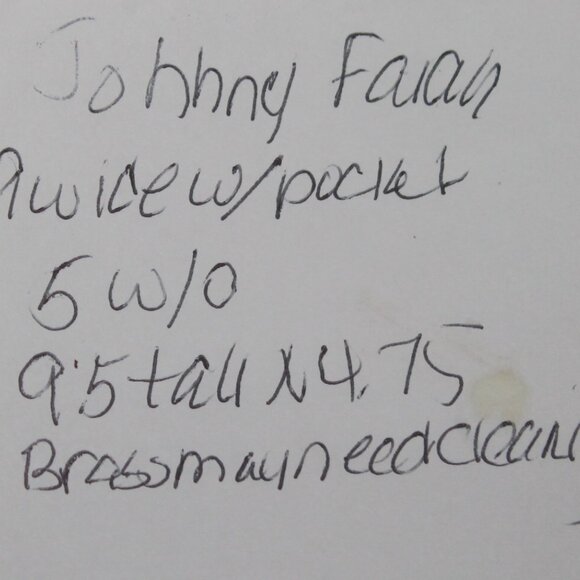 Johnny Farah
w/pocket
5 w/o
9.5 tall x 4.75
Brass may need clean